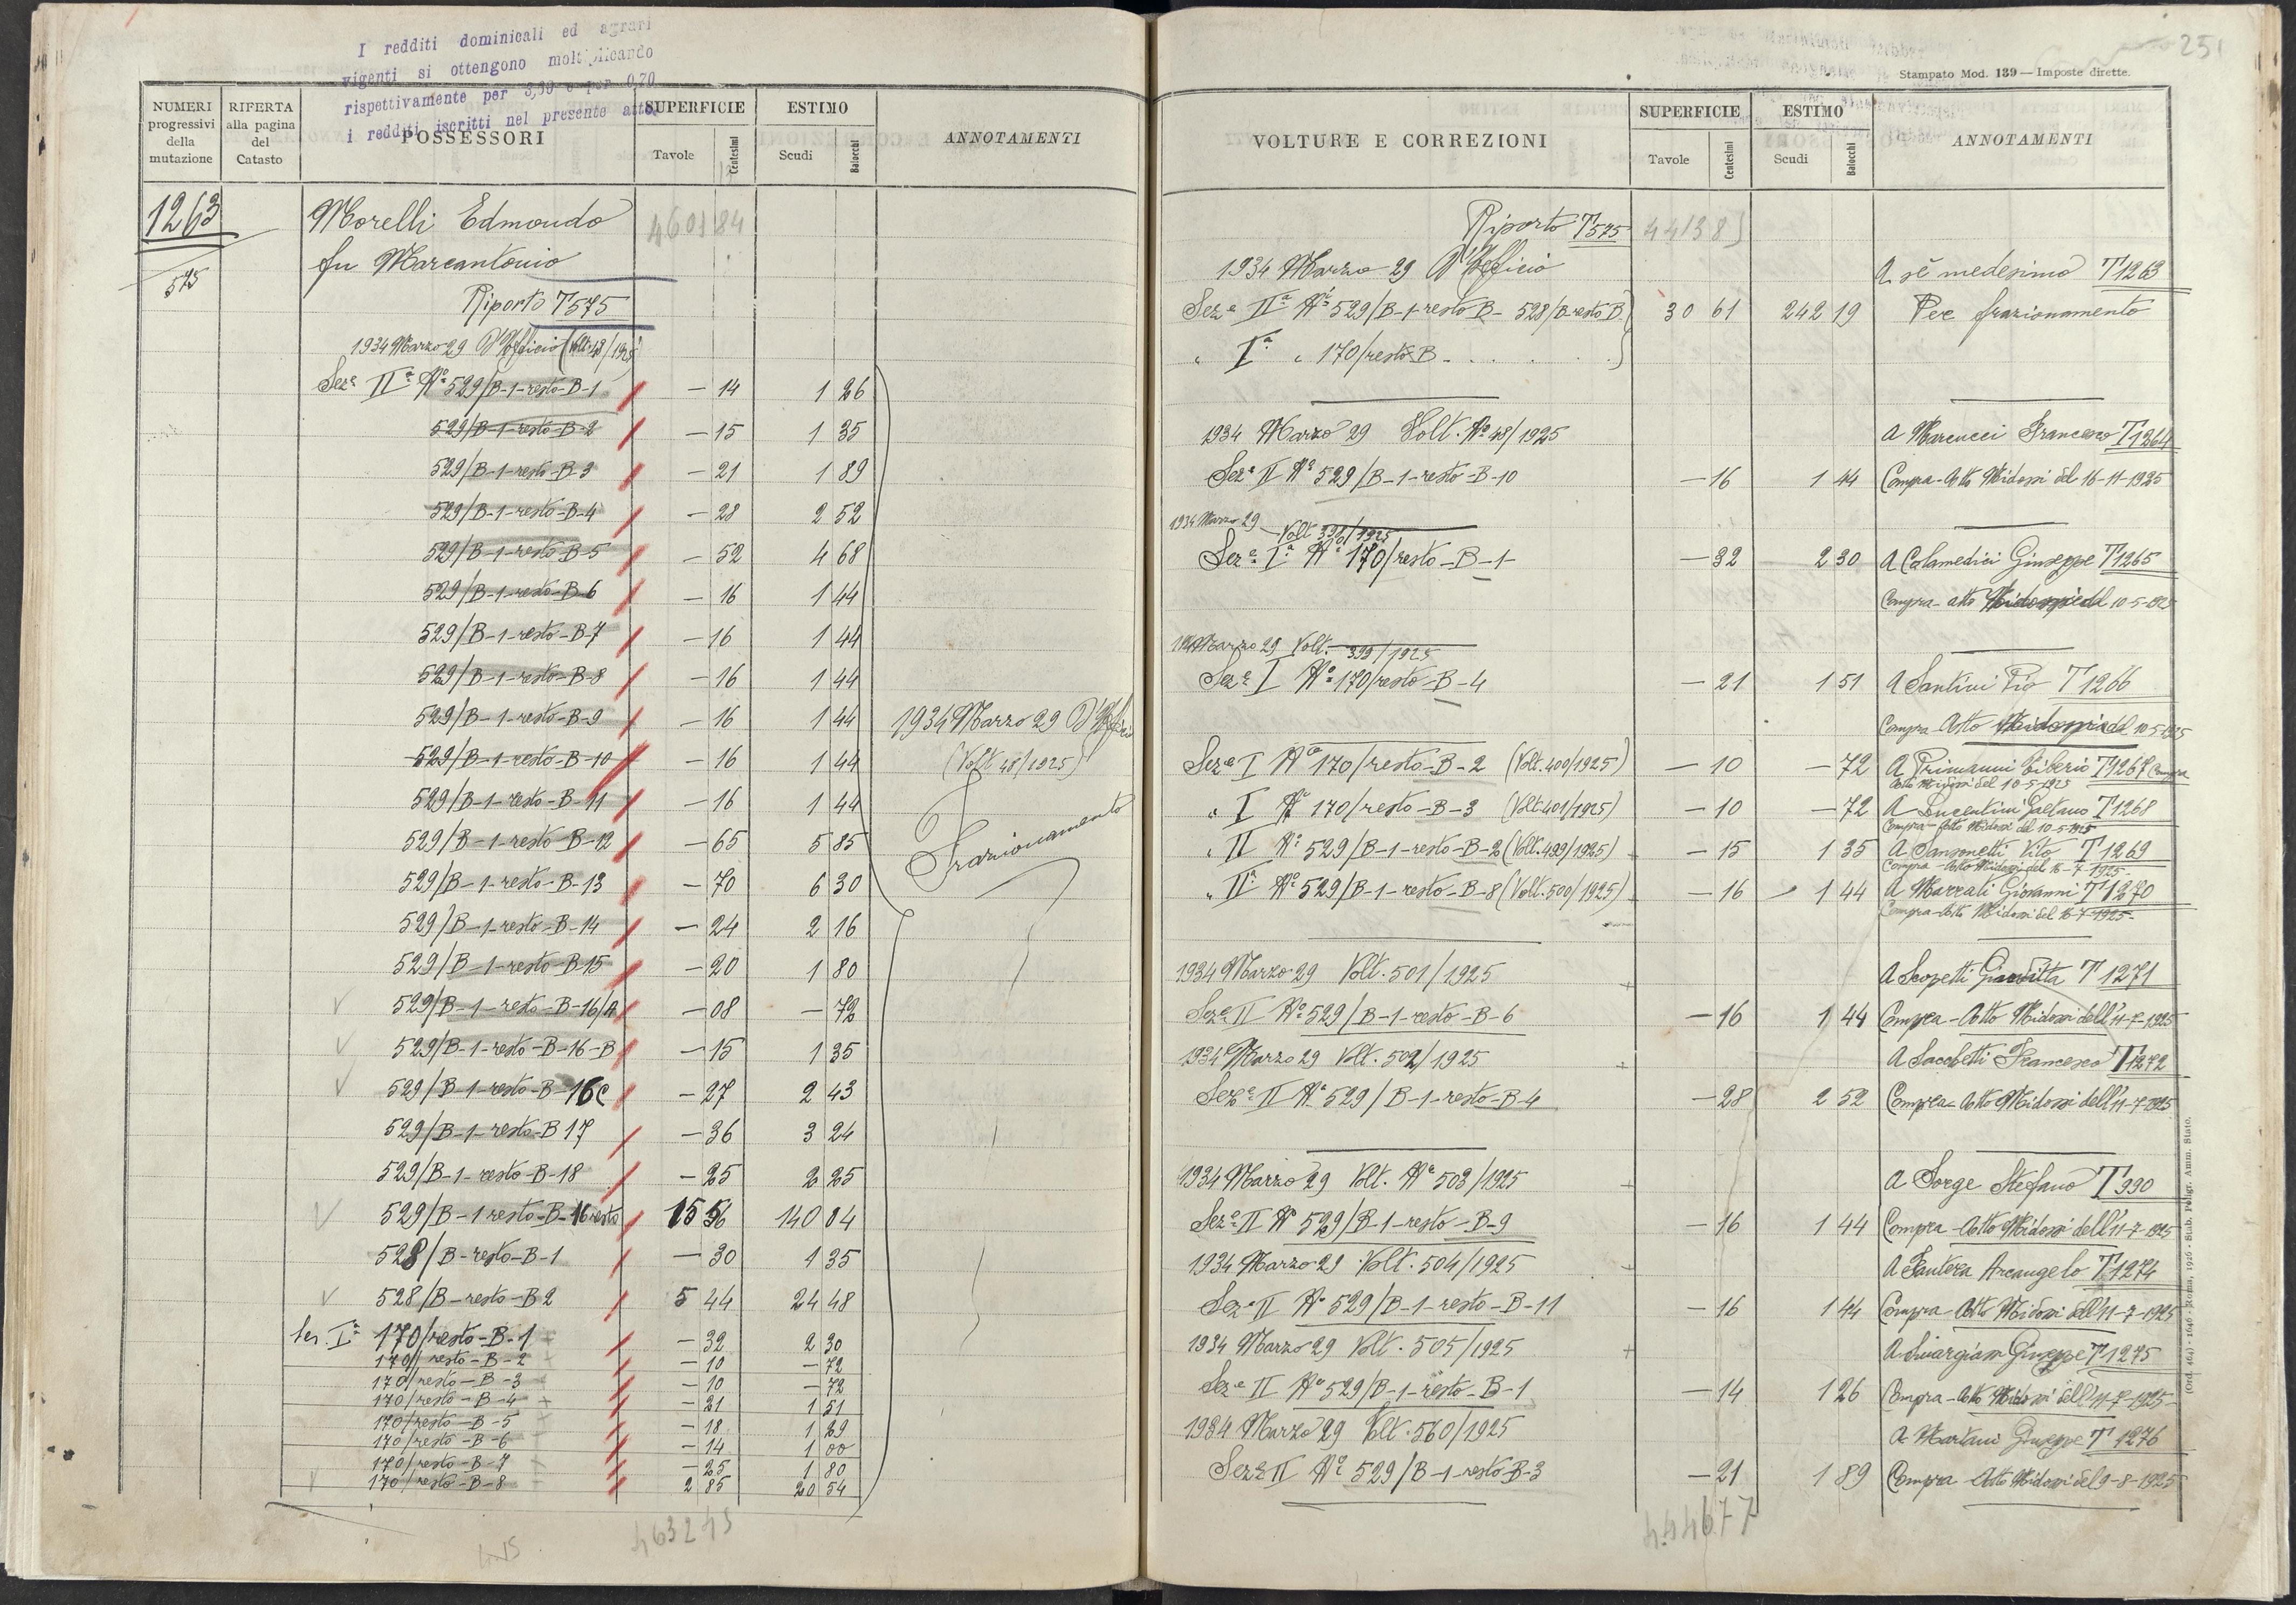 I redditi dominicali ed agrari
vigenti si ottengono moltiplicando
rispettivamente per 3,30 e per 0,70
i redditi iscritti nel presente atto.
NUMERI progressivi della mutazione
RIFERTA alla pagina del Catasto
POSSESSORI
SUPERFICIE
Tavole Centesimi
ESTIMO
Scudi Baiocchi
ANNOTAMENTI
1263 Morelli Edmondo 4601 84
fu Marcantonio
575
Riporto T575
1934 Marzo 29 D'Ufficio (Volt. 48/1925)
Seze IIa No 529/B-1-resto-B-1 — 14 1 26
529/B-1-resto-B-2 — 15 1 35
529/B-1-resto-B-3 — 21 1 89
529/B-1-resto-B-4 — 28 2 52
529/B-1-resto-B-5 — 52 4 68
529/B-1-resto-B-6 — 16 1 44
529/B-1-resto-B-7 — 16 1 44
529/B-1-resto-B-8 — 16 1 44
529/B-1-resto-B-9 — 16 1 44 1934 Marzo 29 D'Ufficio
529/B-1-resto-B-10 — 16 1 44 (Volt. 48/1925)
529/B-1-resto-B-11 — 16 1 44
529/B-1-resto-B-12 — 65 5 85 Frazionamento
529/B-1-resto-B-13 — 70 6 30
529/B-1-resto-B-14 — 24 2 16
529/B-1-resto-B-15 — 20 1 80
529/B-1-resto-B-16/A — 08 — 72
529/B-1-resto-B-16-B — 15 1 35
529/B-1-resto-B-16c — 27 2 43
529/B-1-resto-B 17 — 36 3 24
529/B-1-resto-B-18 — 25 2 25
529/B-1 resto-B-16 resto 15 56 140 04
528/B-resto-B-1 — 30 1 35
528/B-resto-B2 5 44 24 48
Sez. Ia 170/resto-B-1 — 32 2 30
170/resto-B-2 — 10 — 72
170/resto-B-3 — 10 — 72
170/resto-B-4 — 21 1 51
170/resto-B-5 — 18 1 29
170/resto-B-6 — 14 1 00
170/resto-B-7 — 25 1 80
170/resto-B-8 2 85 20 54
4632 45
251
Stampato Mod. 139 — Imposte dirette.
VOLTURE E CORREZIONI
SUPERFICIE
Tavole Centesimi
ESTIMO
Scudi Baiocchi
ANNOTAMENTI
Riporto T575 4413 8
1934 Marzo 29 D'Ufficio A sé medesimo T1263
Seze IIa No 529/B-1-resto B- 528/B-resto B 30 61 242 19 Per frazionamento
" Ia " 170/resto B
1934 Marzo 29 Volt. No 48/1925 A Marcucci Francesco T1264
Seze II No 529/B-1-resto-B-10 — 16 1 44 Compra-Atto Midossi del 16-11-1925
1934 Marzo 29 Volt 398/1925
Seze Ia No 170/resto-B-1- — 32 2 30 A Colamedici Giuseppe T1265
Compra-atto Midossi del 10-5-1925
1934 Marzo 29 Volt. 399/1925
Seze I No 170/resto-B-4 — 21 1 51 A Santini Pio T1266
Compra Atto Midossi del 10-5-1925
Seze I No 170/resto-B-2 (Volt. 400/1925) — 10 — 72 A Primanni Tiberio T1267 Compra
Atto Midossi del 10-5-1925
" I No 170/resto-B-3 (Volt. 401/1925) — 10 — 72 A Gaetano T1268
Compra-Atto Midossi del 10-5-1925
" II No 529/B-1-resto-B-2 (Volt. 499/1925) — 15 1 35 A Sansonetti Vito T1269
Compra-Atto Midossi del 16-7-1925-
" IIa No 529/B-1-resto-B-8 (Volt. 500/1925) — 16 1 44 A Marzati Giovanni T1270
Compra-Atto Midossi del 16-7-1925-
1934 Marzo 29 Volt. 501/1925 A Scopetti T1271
Seze II No 529/B-1-resto-B-6 — 16 1 44 Compra-Atto Midossi dell'11-7-1925
1934 Marzo 29 Volt. 502/1925 A Sacchetti Francesco T1272
Seze II No 529/B-1-resto-B-4 — 28 2 52 Compra-Atto Midossi dell'11-7-1925
1934 Marzo 29 Volt. No 503/1925 A Sorge Stefano T990
Seze II No 529/B-1-resto-B-9 — 16 1 44 Compra-Atto Midossi dell'11-7-1925
1934 Marzo 29 Volt. 504/1925 A Santera Arcangelo T1274
Seze II No 529/B-1-resto-B-11 — 16 1 44 Compra-Atto Midossi dell'11-7-1925
1934 Marzo 29 Volt. 505/1925 A Giuseppe T1275
Seze II No 529/B-1-resto-B-1 — 14 1 26 Compra-Atto Midossi dell'11-7-1925-
1934 Marzo 29 Volt. 560/1925 A Martani Giuseppe T1276
Seze II No 529/B-1-resto-B-3 — 21 1 89 Compra-Atto Midossi del 9-8-1925
4446 77
(Ord. 464) - 1646 - Roma, 1926 - Stab. Poligr. Amm. Stato.